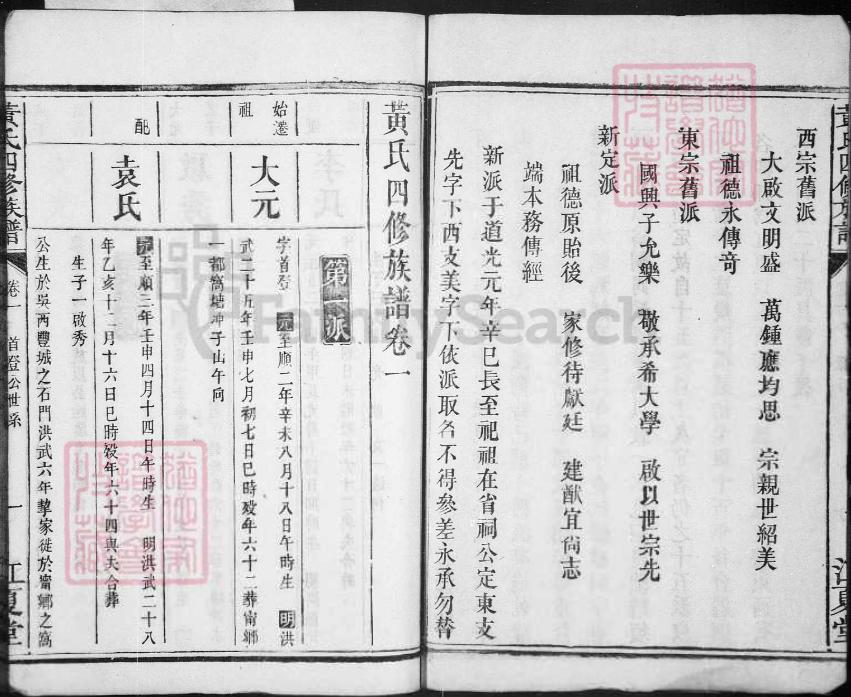 西宗舊派
大啟文明盛 萬鍾應均思 宗親世紹美
祖德永傳奇
東宗舊派
國興子允樂 敬承希大學 啟以世宗先
新定派
祖德原貽後 家修待獻廷 建猷宜尚志
端本務傳經
新派于道光元年辛巳長至祀祖在省祠公定東支
先字下西支美字下依派取名不得參差永承勿替
黃氏四修族譜卷一
第一派
始遷祖
大元
字首登 元至順二年辛未八月十八日午時生 明洪
武二十五年壬申七月初七日巳時歿年六十二葬甯鄉
一都窩塘沖子山午向
配
袁氏
元至順三年壬申四月十四日午時生 明洪武二十八
年乙亥十二月十六日巳時歿年六十四與夫合葬
生子一啟秀
公生於吳西豐城之石門洪武六年挈家徙於甯鄉之窩
黃氏四修族譜
卷一 首登公世系
一
江夏堂
黃氏四修族譜
江夏堂
FamilySearch